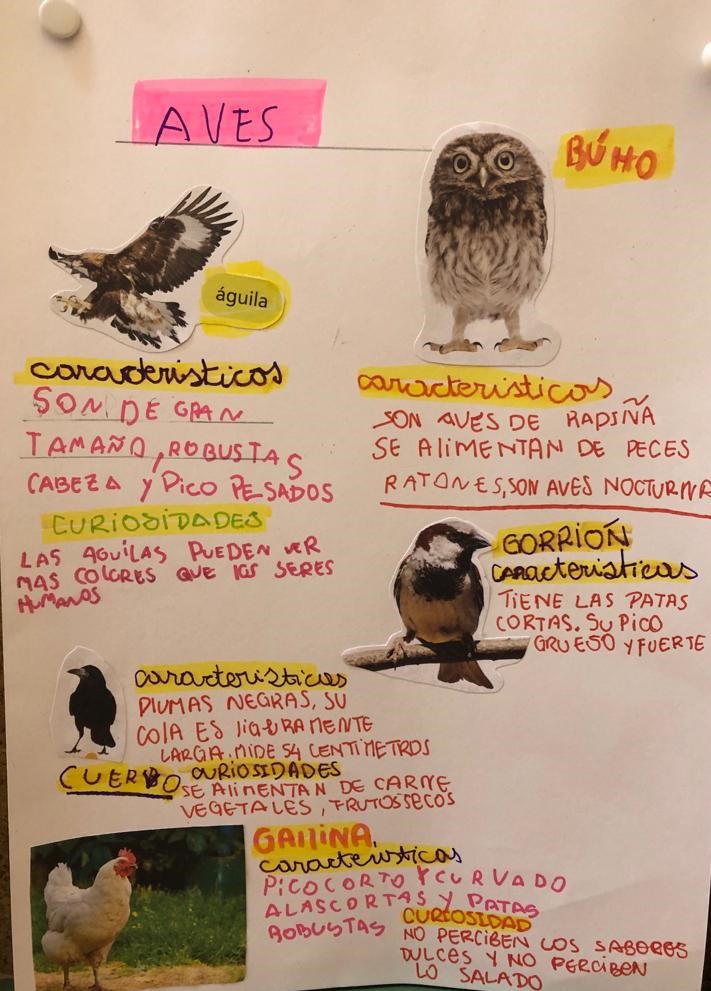 AVES
BÚHO
águila
características
SON DE GRAN
TAMAÑO, ROBUSTAS
CABEZA y PICO PESADOS
CURIOSIDADES
LAS AGUILAS PUEDEN VER
MAS COLORES QUE lOS SERES
HUMANOS
características
SON AVES DE RAPIÑA
SE AliMENTAN DE PECES
RATONES, SON AVES NOCTURNA
GORRIÓN
características
TIENE LAS PATAS
CORTAS. SU PICO
GRUESO Y FUERTE
características
PlUMAS NEGRAS, SU
COlA ES lIGERAMENTE
LARGA. MIDE 54 CENTIMETROS
CUERBO
CURIOSIDADES
SE AliMENTAN DE CARNE
VEGETALES, FRUTOSSECOS
GAllINA
características
PICO CORTO Y CURVADO
ALAS CORTAS Y PATAS
ROBUSTAS
CURIOSIDAD
NO PERCIBEN LOS SABORES
DULCES Y NO PERCIBEN
LO SALADO